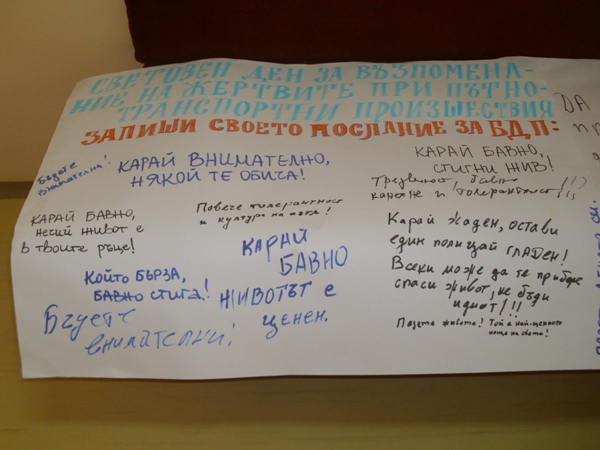 СВЕТОВЕН ДЕН ЗА ВЪЗПОМЕНА-
НИЕ НА ЖЕРТВИТЕ ПРИ ПЪТНО-
ТРАНСПОРТНИ ПРОИЗШЕСТВИЯ
ЗАПИШИ СВОЕТО ПОСЛАНИЕ ЗА БДП:
Бъдете
внимателни!
КАРАЙ ВНИМАТЕЛНО,
НЯКОЙ ТЕ ОБИЧА!
КАРАЙ БАВНО,
СТИГНИ ЖИВ!
Трезвеност, бавно
каране и толерантност!!!
КАРАЙ БАВНО,
нечий живот е
в твоите ръце!
Повече толерантност
и култура на пътя!
Карай жаден, остави
един полицай гладен!
Всеки може да те прибере
спаси живот, не бъди
идиот!!!
КАРАЙ
БАВНО
ЖИВОТЪТ е
ценен.
Който бърза,
бавно стига!
Бъдете
внимателни!
Пазете живота! Той е най-ценното
нещо на света!
ДА